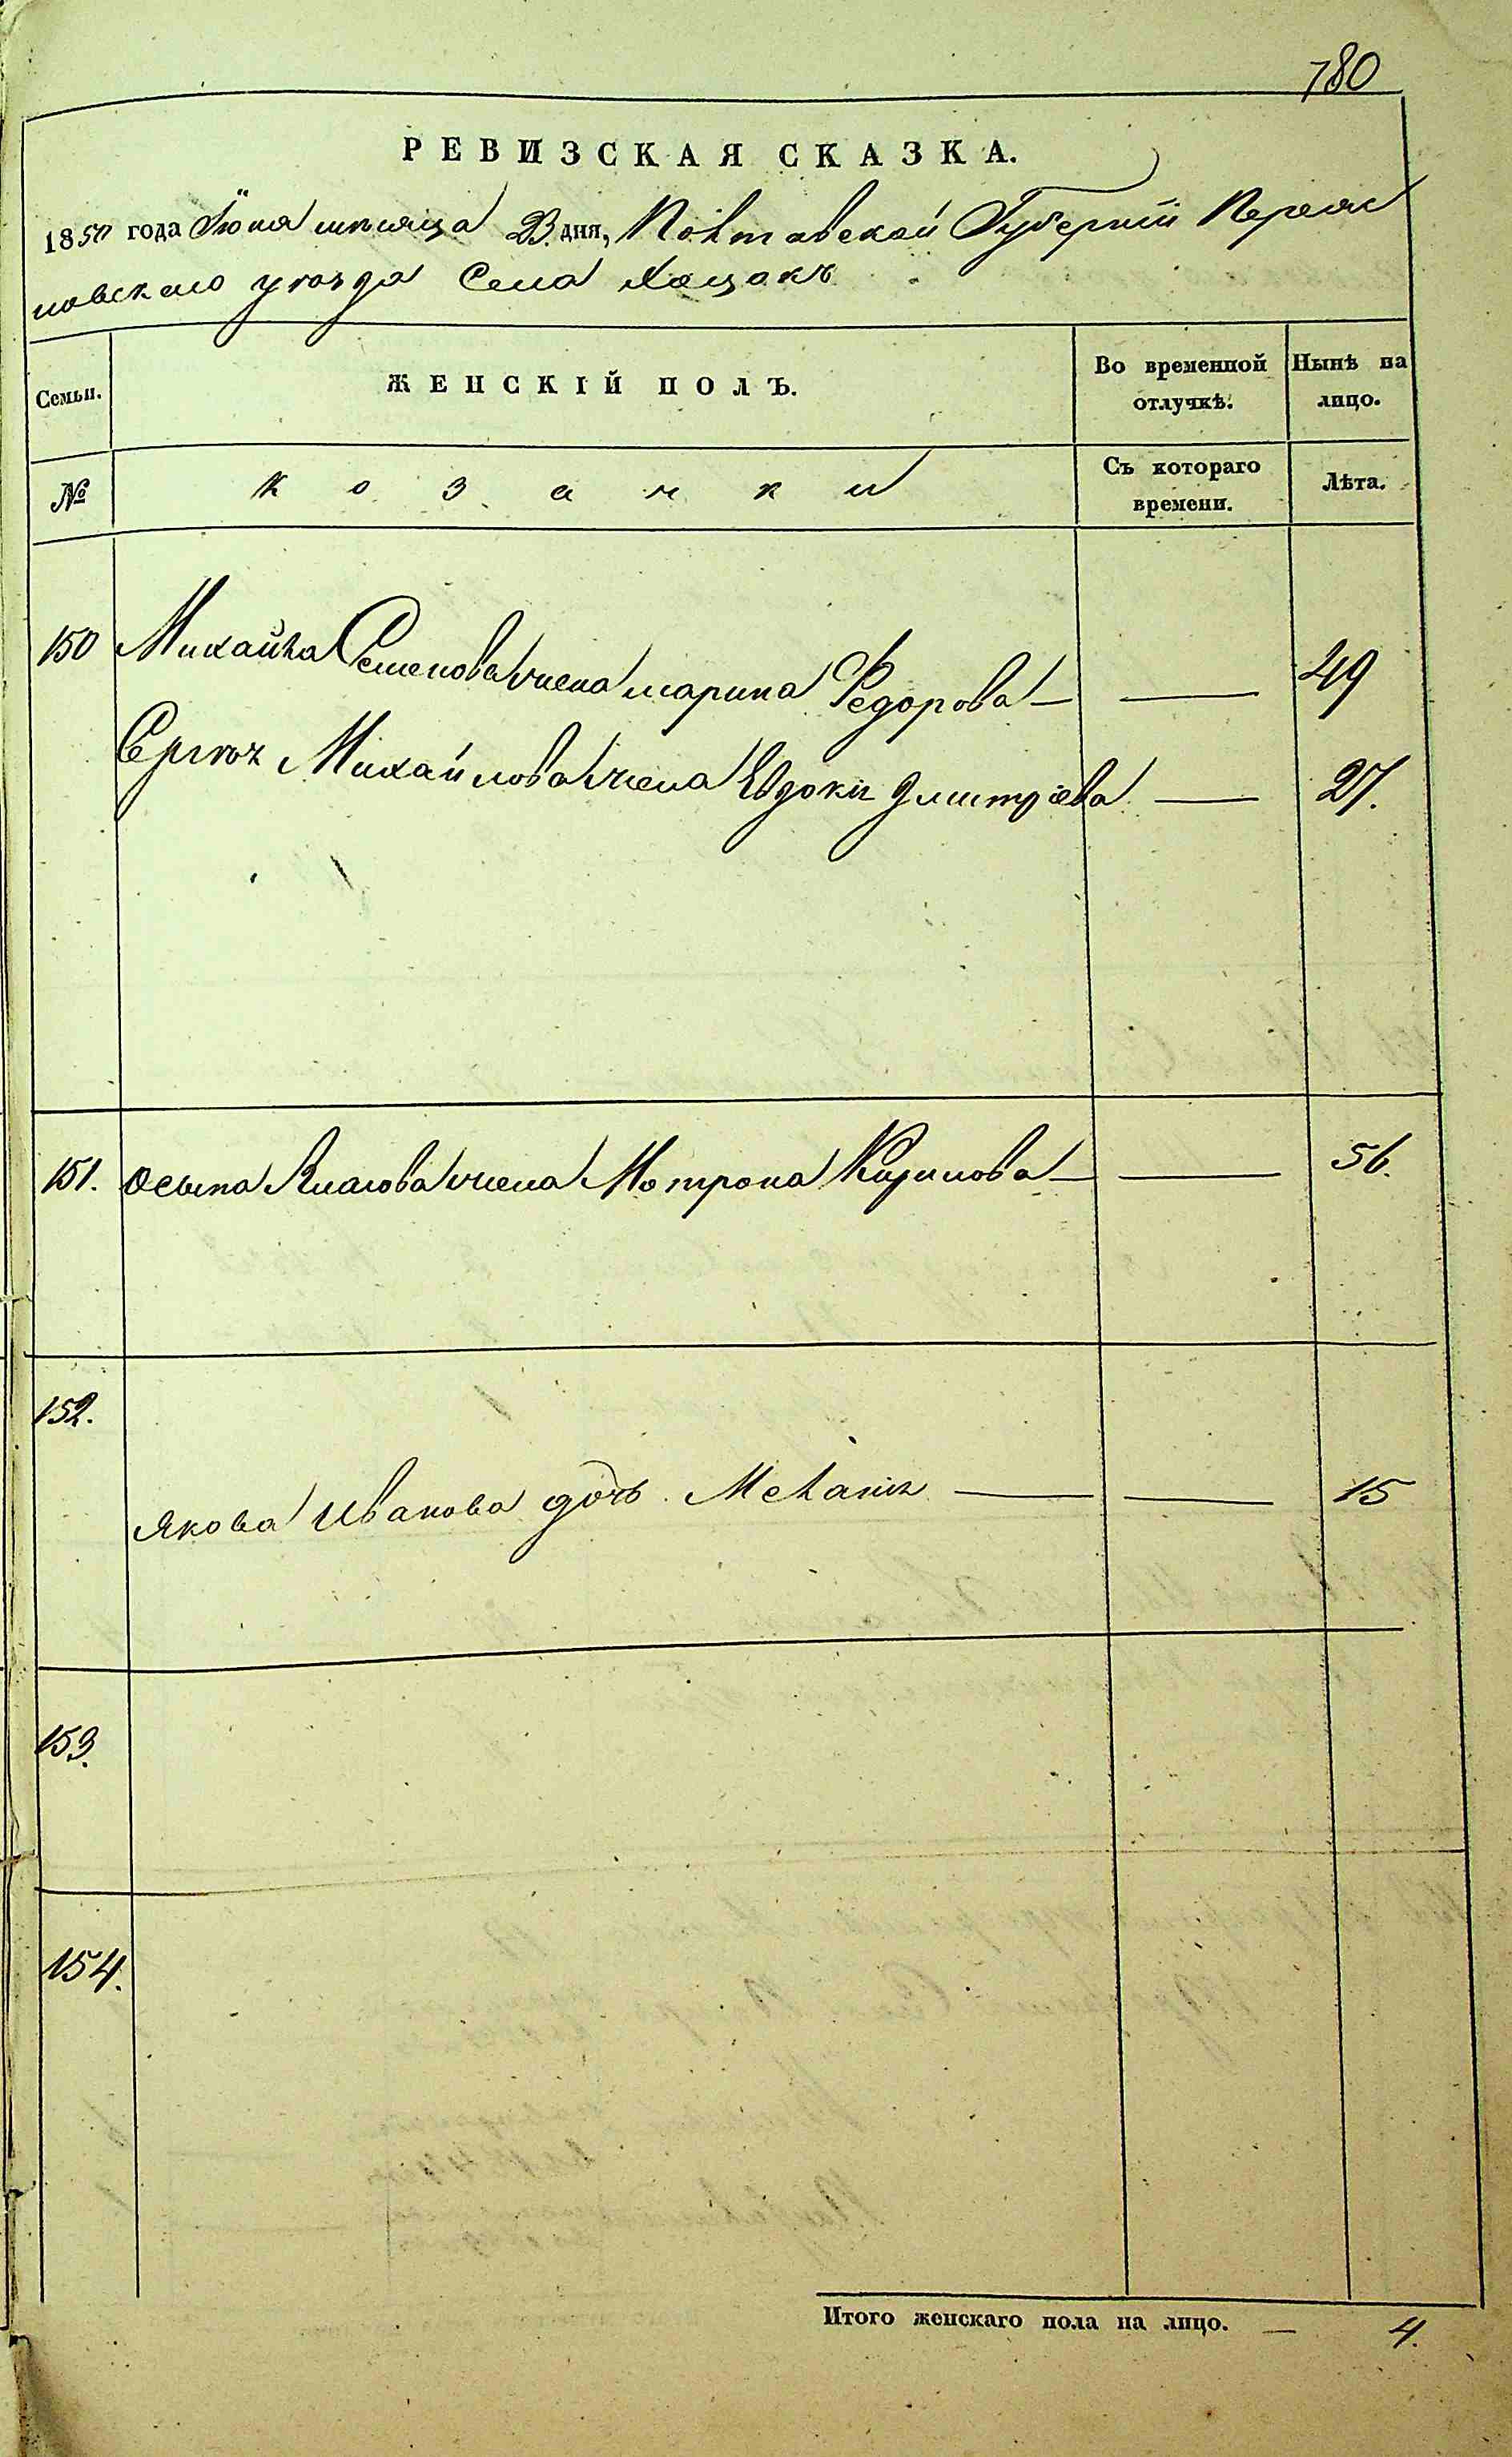 780
РЕВИЗСКАЯ СКАЗКА.
1850 года Іюня мѣсяца 23 дня, Полтавской Губерніи Переяс
лавскаго уѣзда Села Хоцокъ
Семьи. ЖЕНСКІЙ ПОЛЪ. Во временной отлучкѣ. Нынѣ на лицо.
№ Козачки Съ котораго времени. Лѣта.
150 Михайла Семенова жена Марина Федорова — — 49
Сергѣя Михайлова жена Евдокія Дмитріева — 27.
151. Осыпа Власова жена Мотрона Кирилова — — 56.
152.
Якова Иванова дочь Меланія — — 15
153.
154.
Итого женскаго пола на лицо. — 4.